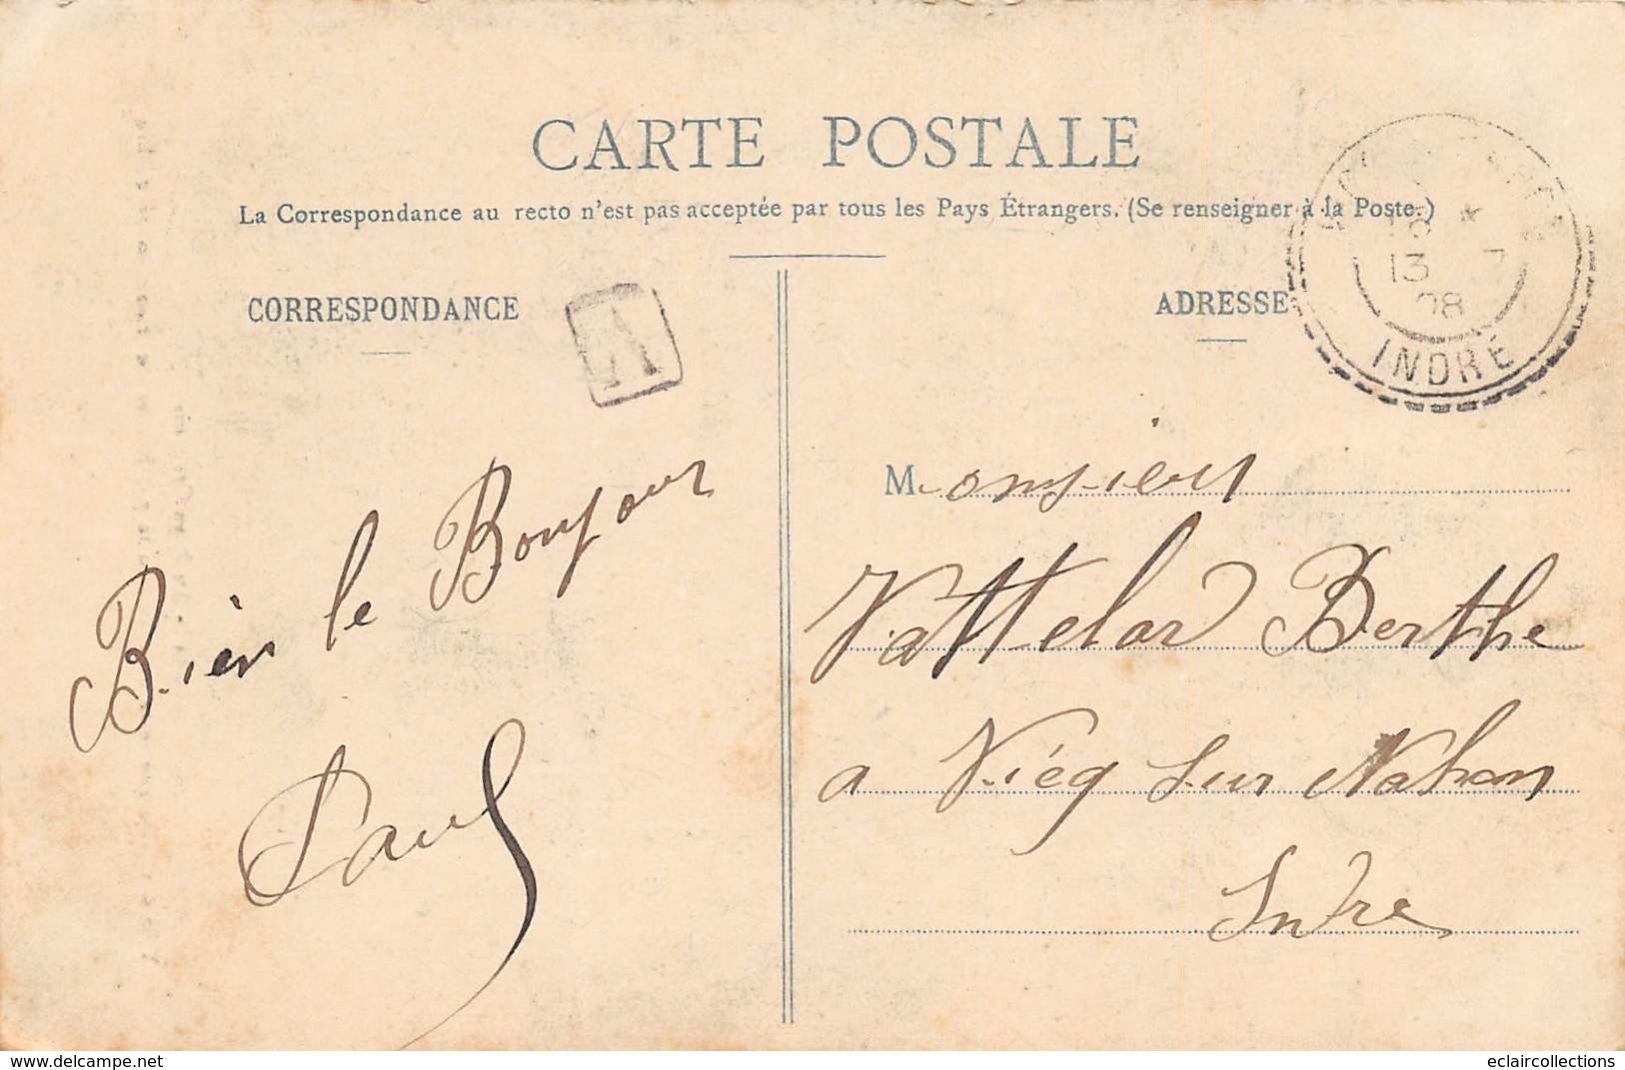 CARTE POSTALE
La Correspondance au recto n'est pas acceptée par tous les Pays Étrangers. (Se renseigner à la Poste.)
CORRESPONDANCE
A
ADRESSE
13 7
08
INDRE
Bien le Bonjour
Paul
Monsieur
Vattelar Berthe
a Vicq sur Nahon
Indre
www.delcampe.net
eclaircollections